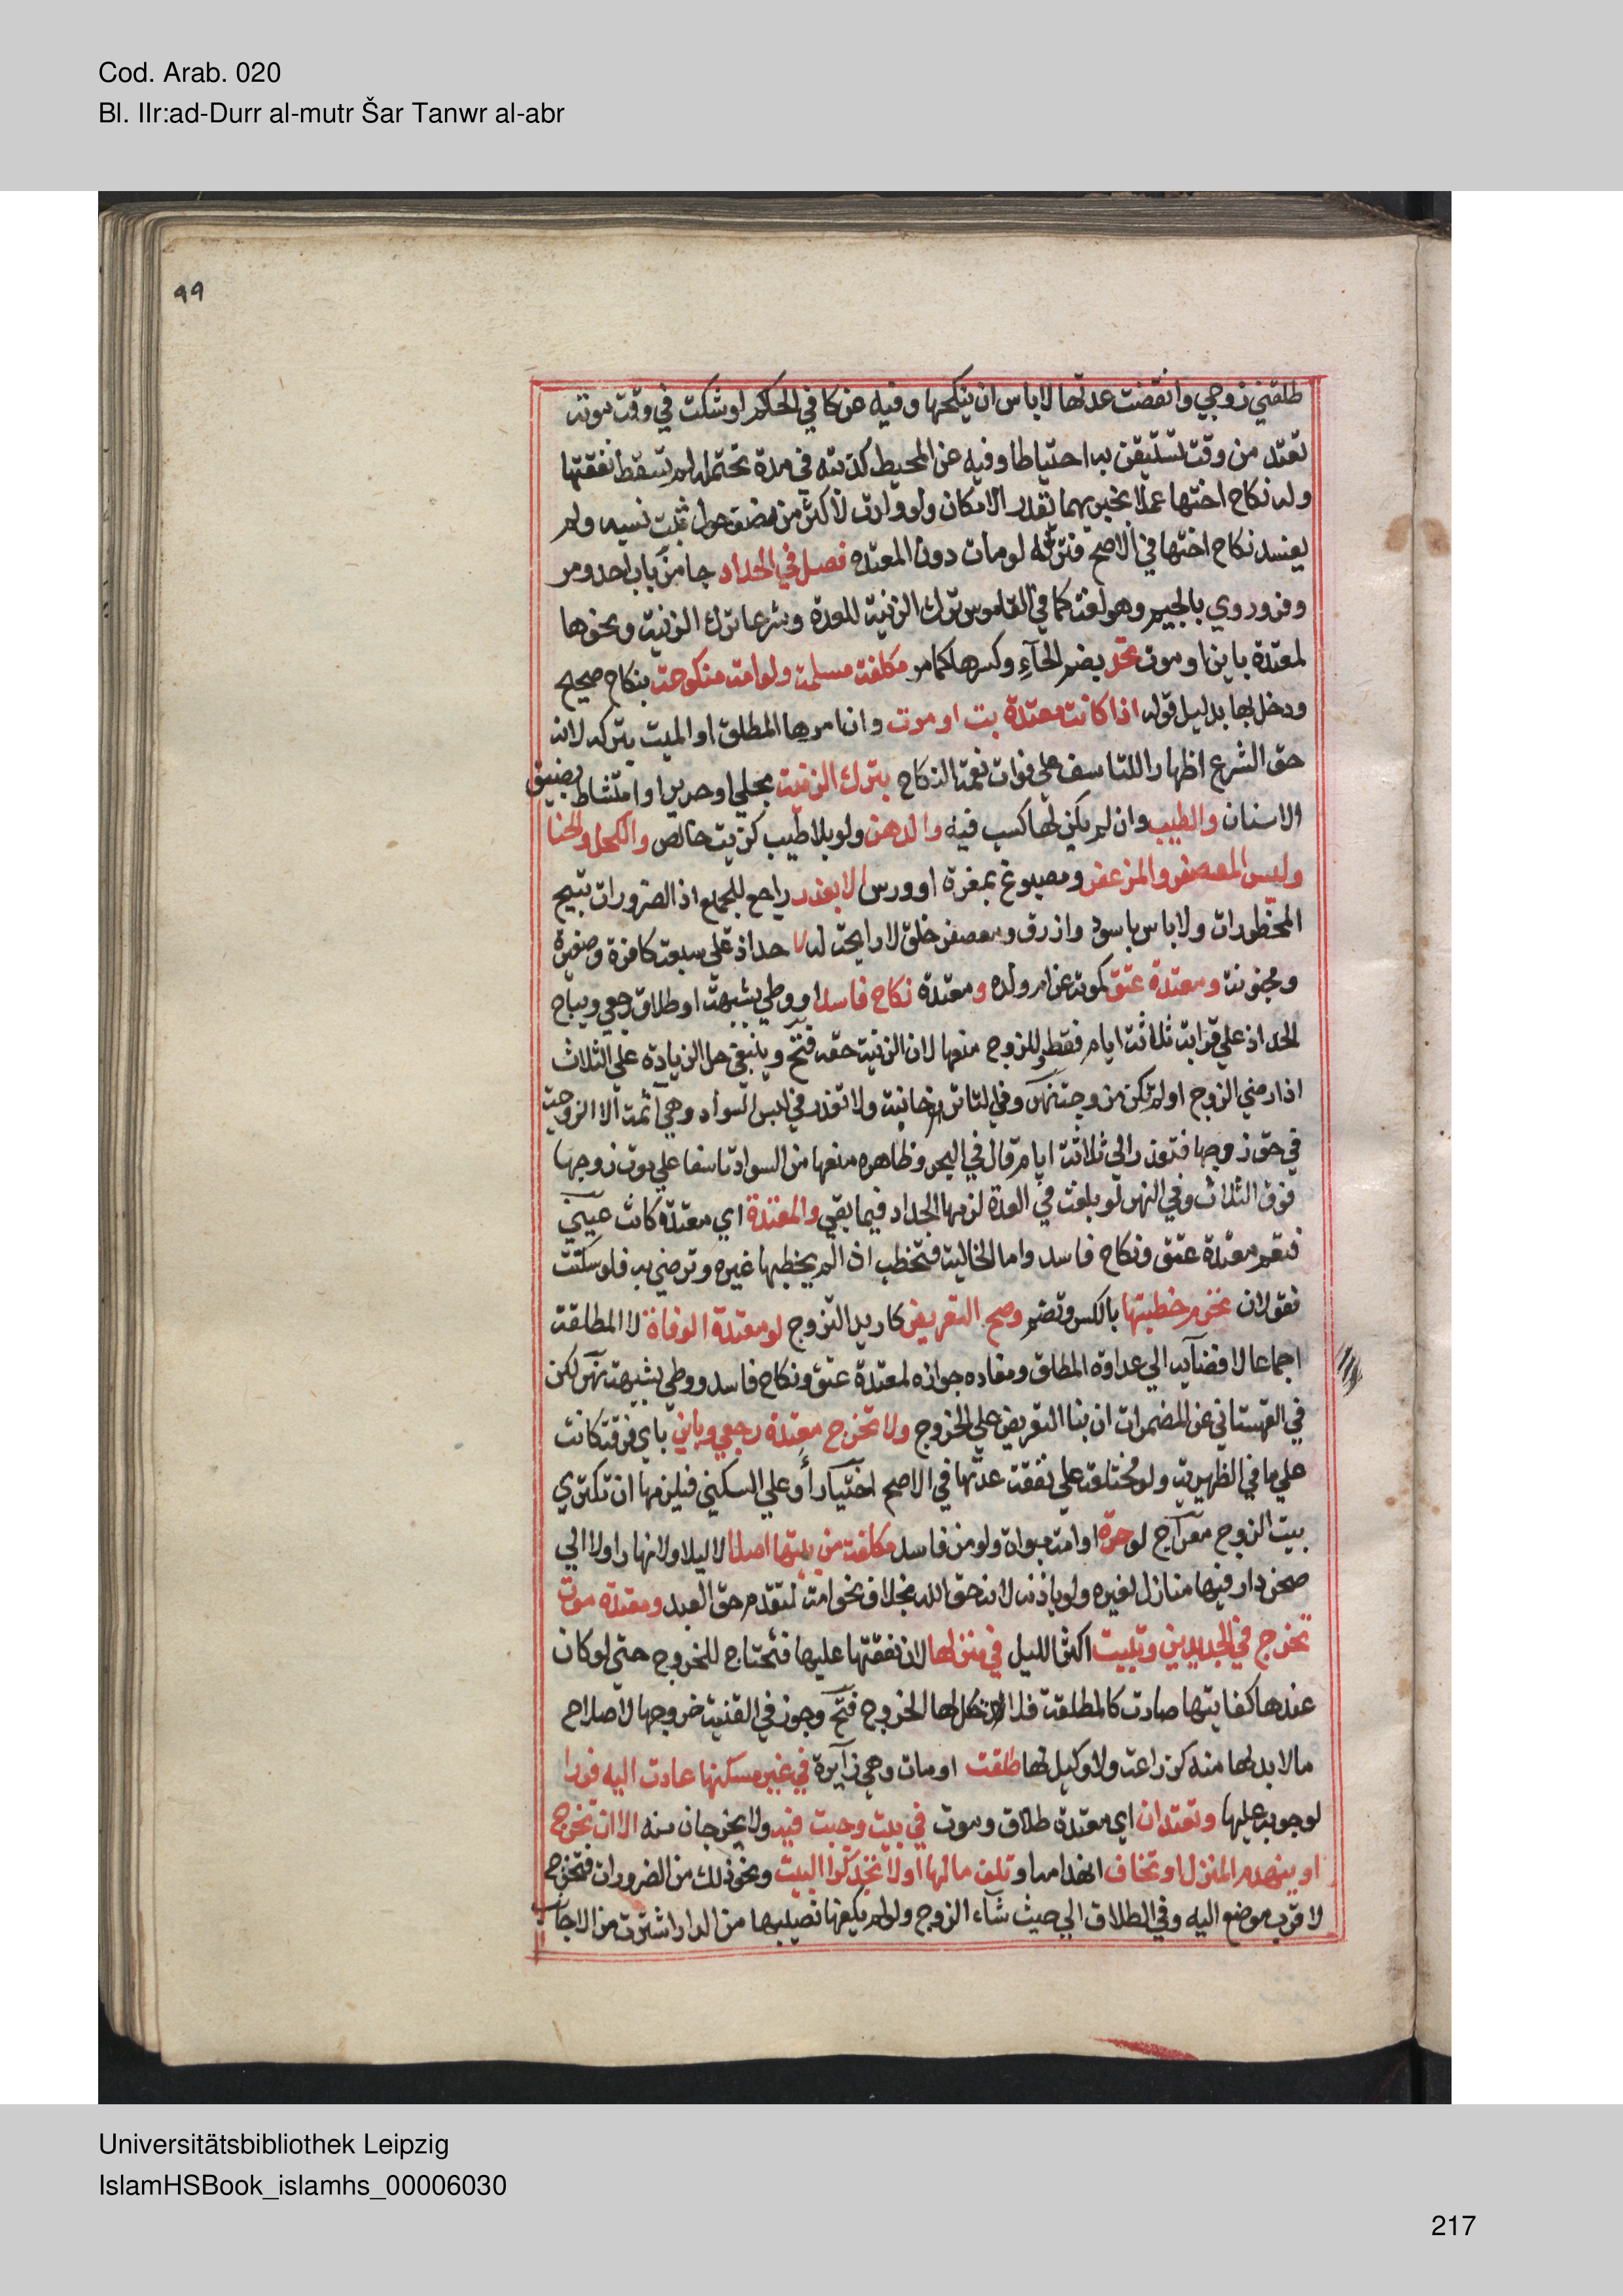 Cod. Arab. 020
Bl. IIr:ad-Durr al-mutr Šar Tanwr al-abr
٩٩
طلقني زوجي وانقضت عدتها لاباس ان ينكحها وفيه عن كافي الحاكم لو شكت في وقت موته
تعتد من وقت تستيقن به احتياطا وفيه عن المحيط كذبته في مدة تحتمله لم تسقط نفقتها
وله نكاح اختها عملا بخبريهما بقدر الامكان ولو ولدت لاكثر من نصف حول ثبت نسبه ولم
يفسد نكاح اختها في الاصح فترثه لو مات دون المعتده فصل في الحداد جا من باب احد ومر
وفر وروي بالجيم وهو لغة كما في القاموس ترك الزينة للعدة وشرعا ترك الزينة ونحوها
لمعتدة باين او موت تحد بضم الحآء وكسرها كما مر مكلفة مسلمة ولو امة منكوحة بنكاح صحيح
ودخل بها بدليل قوله اذا كانت معتدة بت او موت وان امرها المطلق او الميت بتركه لانه
حق الشرع اظهارا للتاسف على فوات نعمة النكاح بترك الزينة بحلي او حرير او امتشاط بضيق
الاسنان والطيب وان لم يكن لها كسب فيه والدهن ولو بلا طيب كزيت خالص والكحل والحنا
ولبس المعصفر والمزعفر ومصبوغ بمغرة او ورس الا بعذر راجع للجميع اذ الضرورات تبيح
المحظورات ولاباس باسود وازرق ومعصفر خلق لا رايحة له لا حداد على سبعة كافرة وصغيرة
ومجنونة ومعتدة عتق كموته عن ام ولده ومعتدة نكاح فاسد او وطي بشبهة او طلاق رجعي ويباح
الحداد علي قرابة ثلاثة ايام فقط وللزوج منعها لان الزينة حقه فتح وينبغي حل الزيادة على الثلاث
اذا رضي الزوج او لم تكن مزوجة نهر وفي التاترخانية ولا تعذر في لبس السواد وهي آثمة الا الزوجة
في حق زوجها فتعذر الي ثلاثة ايام قال في البحر وظاهره منعها من السواد تاسفا علي موت زوجها
فوق الثلاث وفي النهر لو بلغت في العدة لزمها الحداد فيما بقي والمعتدة اي معتدة كانت عيني
فتعم معتدة عتق ونكاح فاسد واما الخالية فتخطب اذا لم يخطبها غيره وترضي به فلو سكتت
فقولان تحرم خطبتها بالكسر وتضم وصح التعريض كاريد التزوج لو معتدة الوفاة لا المطلقة
اجماعا لافضآيه الي عداوة المطلق ومفاده جوازه لمعتدة عتق ونكاح فاسد ووطي بشبهة نهر لكن
في القهستاني عن المضمرات ان بنا التعريض علي الخروج ولا تخرج معتدة رجعي وباين باي فرقة كانت
علي ما في الظهيرية ولو مختلعة علي نفقة عدتها في الاصح اختيار او علي السكني فيلزمها ان تكتري
بيت الزوج معراج لو حرة او امة مبواة ولو من فاسد مكلفة من بيتها اصلا لا ليلا ولا نهارا ولا الي
صحن دار فيها منازل لغيره ولو باذنه لانه حق الله بخلاف نحو امة لتقدم حق العبد ومعتدة موت
تخرج في الجديدين وتبيت اكثر الليل في منزلها لان نفقتها عليها فتحتاج للخروج حتى لو كان
عندها كفايتها صارت كالمطلقة فلا يحل لها الخروج فتح وجوز في القنية خروجها لاصلاح
مالا بد لها منه كزراعة ولا وكيل لها طلقت او مات وهي زآيرة في غير مسكنها عادت اليه فورا
لوجوبه عليها وتعتدان اي معتدة طلاق وموت في بيت وجبت فيه ولا يخرجان منه الا ان تخرج
او ينهدم المنزل او تخاف انهدامه او تلف مالها او لا تجد كرا البيت ونحو ذلك من الضرورات فتخرج
لاقرب موضع اليه وفي الطلاق الي حيث شآء الزوج ولو لم يكفها نصيبها من الدار اشترت من الاجانب
Universitätsbibliothek Leipzig
IslamHSBook_islamhs_00006030
217